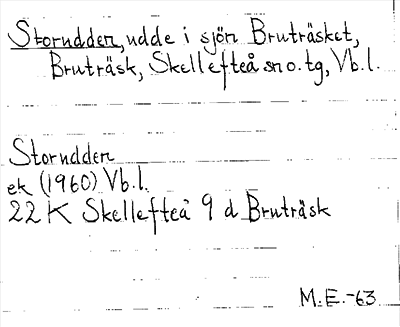 Storudden, udde i sjön Bruträsket,
Bruträsk, Skellefteå sn o. tg, Vb. l.
Storudden
ek (1960) Vb. l.
22 K Skellefteå 9 d Bruträsk
M. E. -63